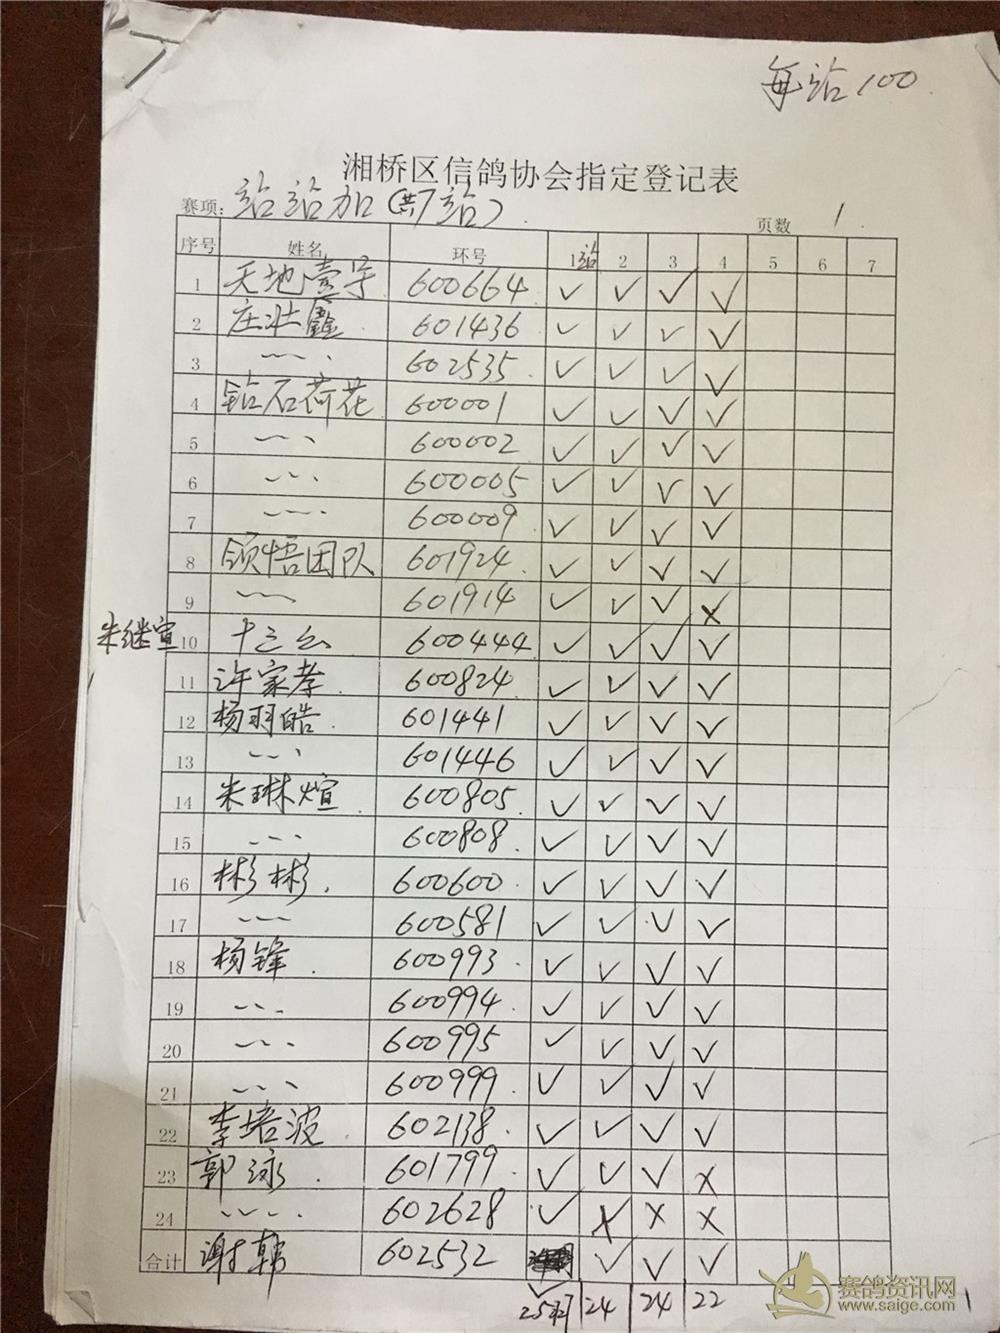 每站100
湘桥区信鸽协会指定登记表
赛项: 站站加(共7站)
页数 1
序号 姓名 环号 1站 2 3 4 5 6 7
1 天地壹宇 600664 ✓ ✓ ✓ ✓
2 庄壮鑫 601436 ✓ ✓ ✓ ✓
3 〃 602535 ✓ ✓ ✓ ✓
4 钻石荷花 600001 ✓ ✓ ✓ ✓
5 〃 600002 ✓ ✓ ✓ ✓
6 〃 600005 ✓ ✓ ✓ ✓
7 〃 600009 ✓ ✓ ✓ ✓
8 领悟团队 601924 ✓ ✓ ✓ ✓
9 〃 601914 ✓ ✓ ✓ ×
朱继宣 10 十三公 600444 ✓ ✓ ✓ ✓
11 许家孝 600824 ✓ ✓ ✓ ✓
12 杨羽皓 601441 ✓ ✓ ✓ ✓
13 〃 601446 ✓ ✓ ✓ ✓
14 朱琳煊 600805 ✓ ✓ ✓ ✓
15 〃 600808 ✓ ✓ ✓ ✓
16 彬彬 600600 ✓ ✓ ✓ ✓
17 〃 600581 ✓ ✓ ✓ ✓
18 杨锋 600993 ✓ ✓ ✓ ✓
19 〃 600994 ✓ ✓ ✓ ✓
20 〃 600995 ✓ ✓ ✓ ✓
21 〃 600999 ✓ ✓ ✓ ✓
22 李培波 602138 ✓ ✓ ✓ ✓
23 郭泳 601799 ✓ ✓ ✓ ×
24 〃 602628 ✓ × × ×
合计 谢韩 602532 ✓ ✓ ✓ ✓
25羽 24 24 22
赛鸽资讯网
www.saige.com